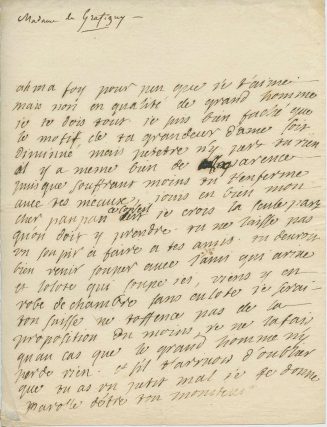 Madame de Grafigny
ah ma foy pour peu que je t'aime
mais non en qualité de grand homme
je te dois tout je suis bien fachée que
le motif de ta grandeur d'ame soit
diminué mais peutetre n'y part tu rien
il y a meme bien de parence
puisque souffrant moins tu t'enferme
avec tes meaux, jouis en bien mon
cher panpan je crois la seule part
qu'on doit y prendre tu ne laisse pas
un soupir a faire a tes amis. tu devrois
bien venir souper avec l'ami qui arive
et lolote qui soupe ici, viens y en
robe de chambre sans culote je serai
ton suisse ne toffence pas de la
proposition du moins, je ne la fais
qu'au cas que le grand homme n'y
perde rien. et s'il t'arrivois d'oublier
que tu as un petit mal je te donne
parolle d'être ton moniteur